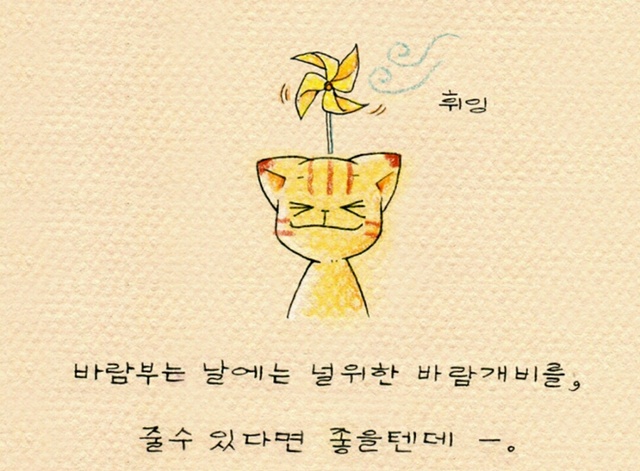 휘잉
바람부는 날에는 널위한 바람개비를,
줄수 있다면 좋을텐데 ー。